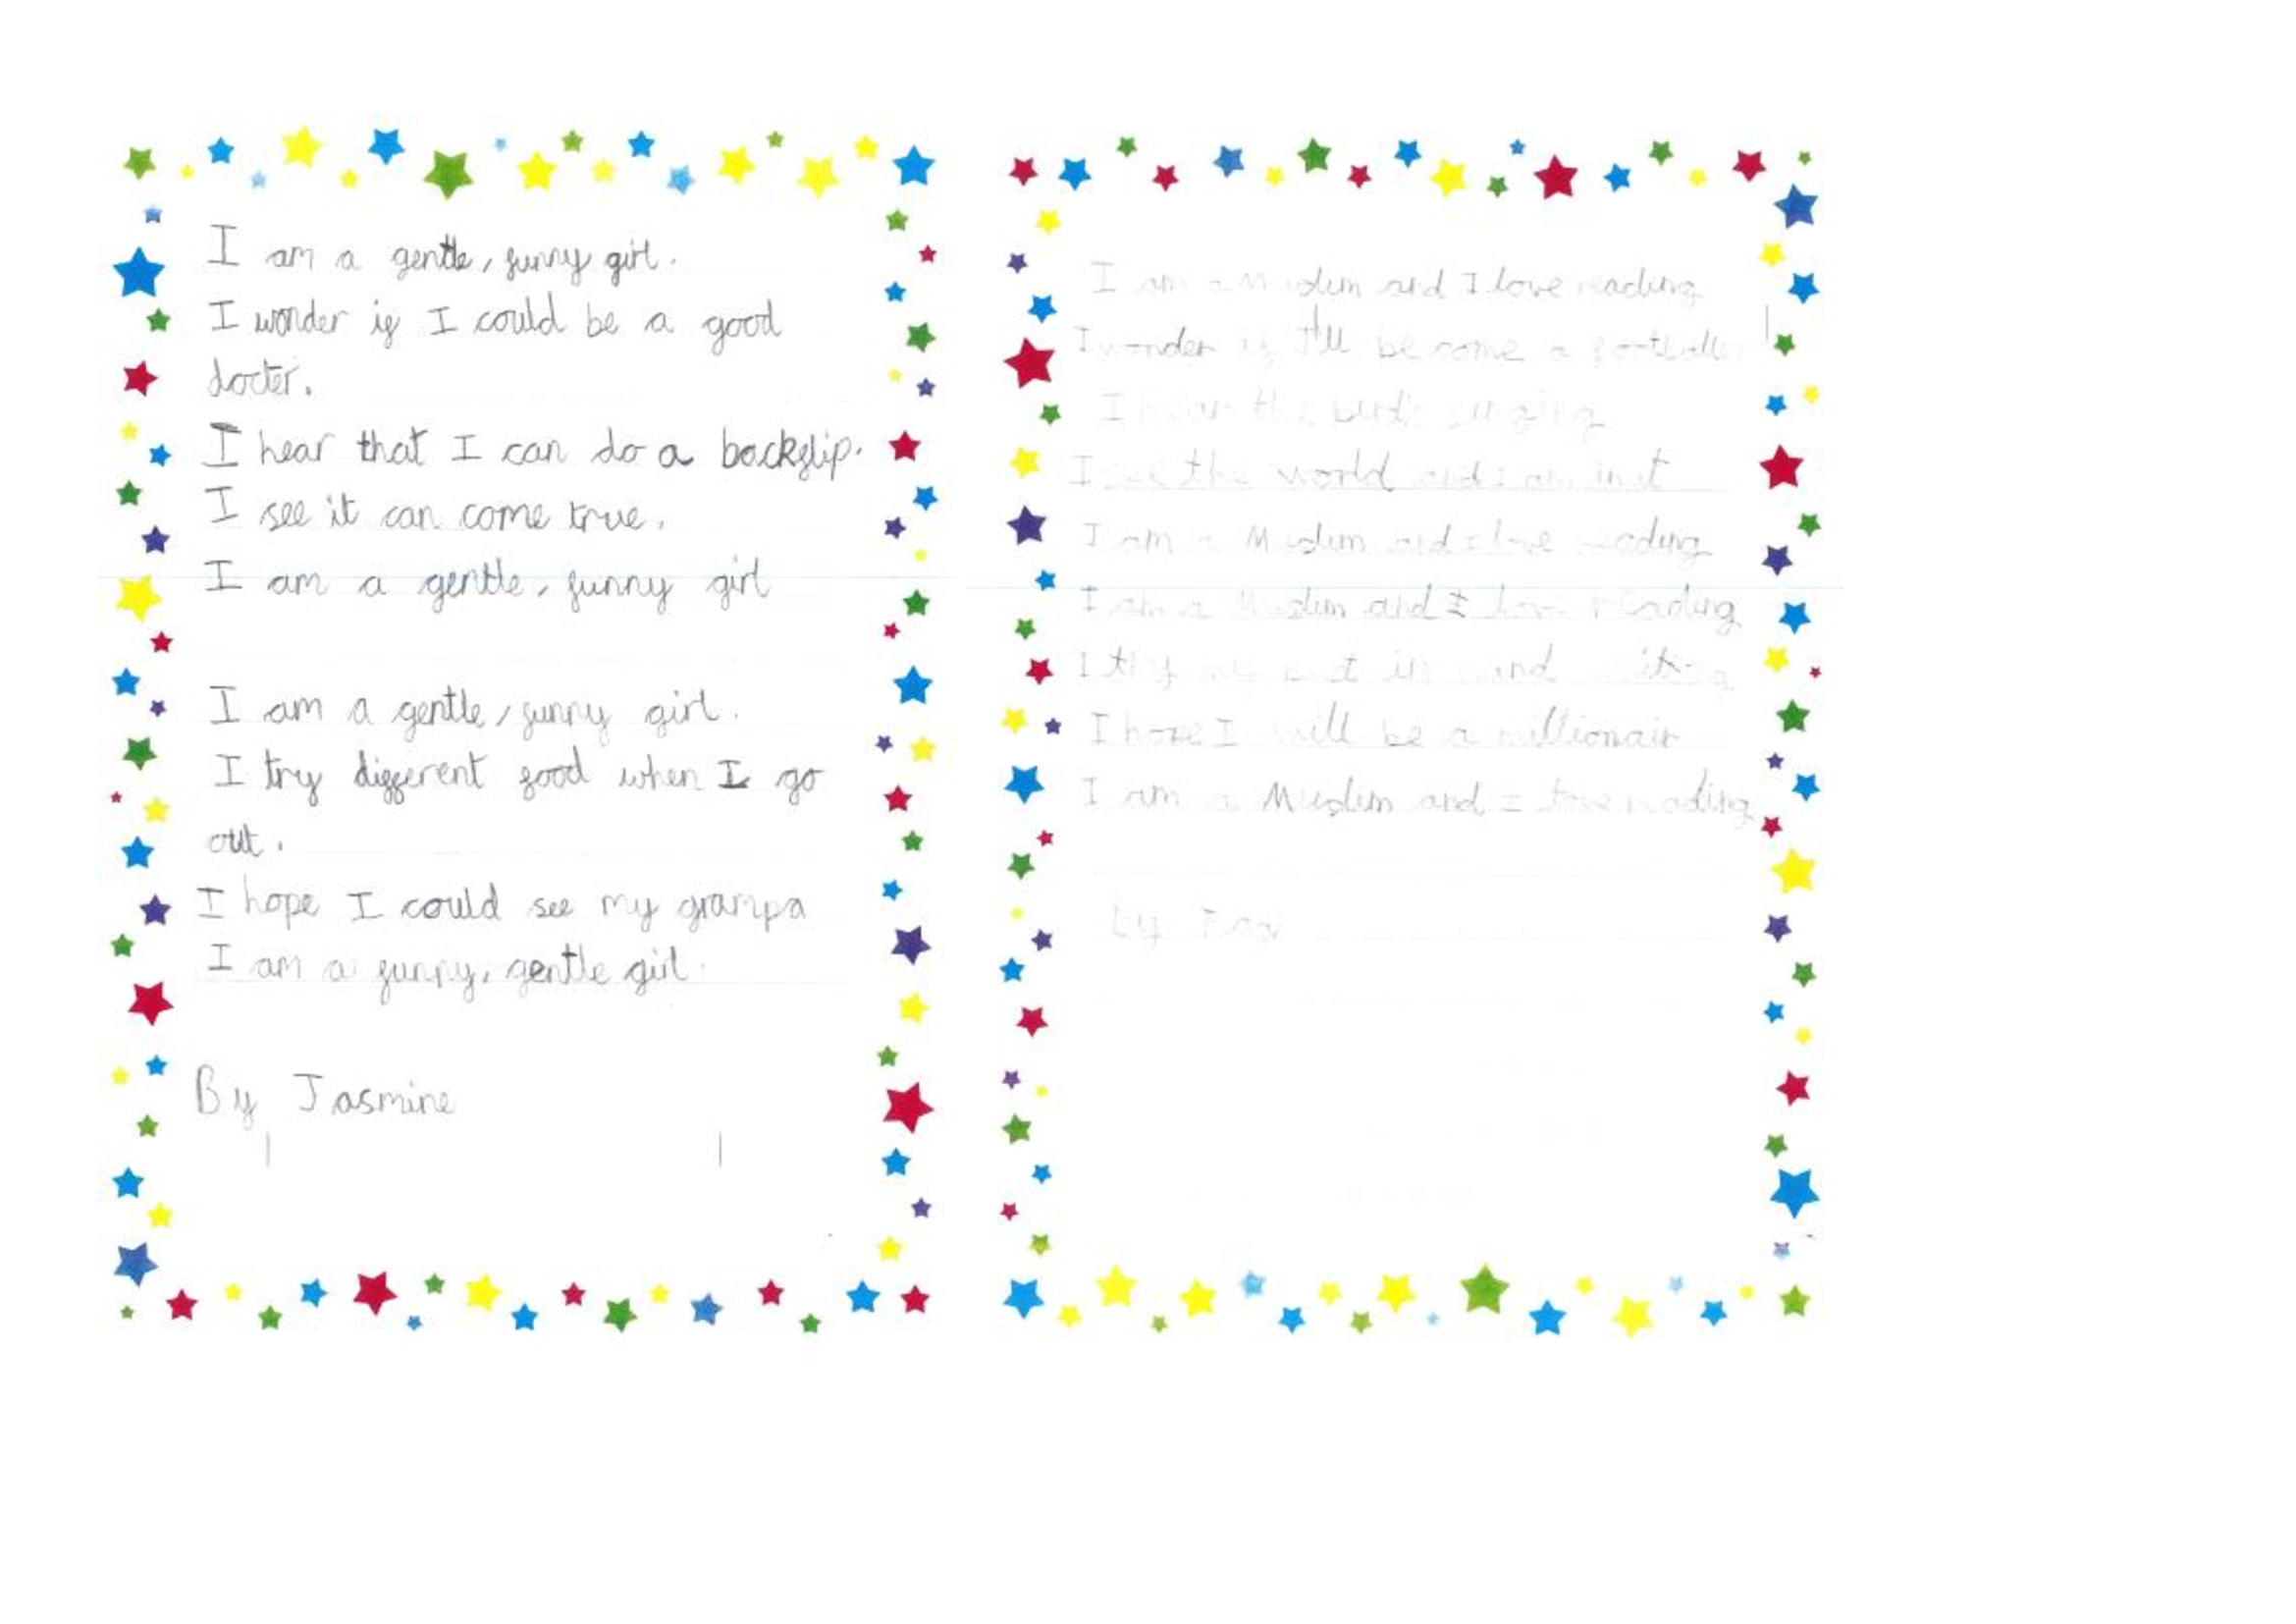 I am a gentle, funny girl.
I wonder if I could be a good
docter.
I hear that I can do a backflip.
I see it can come true.
I am a gentle, funny girl
I am a gentle, funny girl.
I try different food when I go
out.
I hope I could see my grampa
I am a funny, gentle girl.
By Jasmine
I am a Muslim and I love reading
I wonder if I'll become a footballer
I hear the birds singing
I see the world and I am in it
I am a Muslim and I love reading
I am a Muslim and I love reading
I try my best in
I hope I will be a millionair
I am a Muslim and I love reading
by